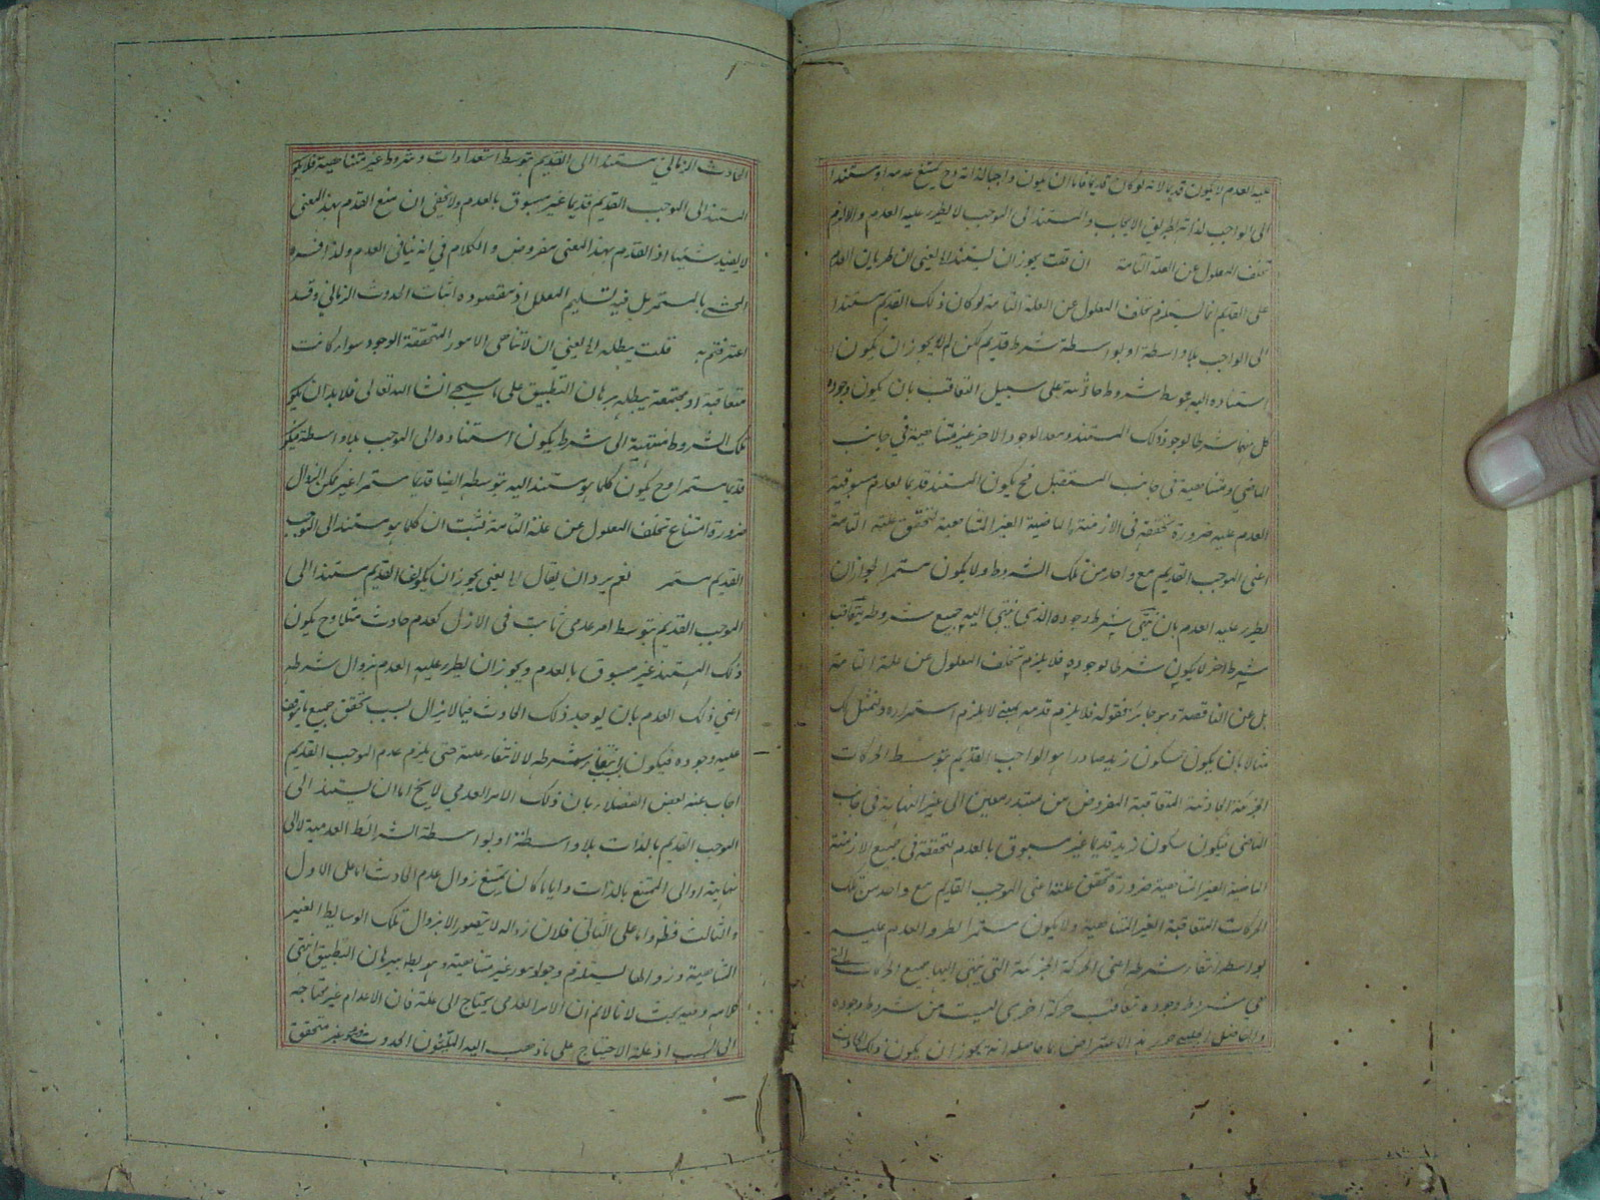 عليه العدم لا يكون قديما لانه لو كان قديما فاما ان يكون واجبا لذاته وح يمتنع عدمه او مستندا
الى الواجب لذاته بطريق الايجاب والمستند الى الموجب لا يطرء عليه العدم والا لزم
تخلف المعلول عن العلة التامة ان قلت يجوز ان يستند الخ يعنى ان طريان العدم
على القديم انما يستلزم تخلف المعلول عن العلة التامة لو كان ذلك القديم مستندا
الى الواجب بلا واسطة او بواسطة شرط قديم لكن لم لا يجوز ان يكون
استناده اليه بتوسط شروط حادثة على سبيل التعاقب بان يكون وجود
كل منها شرطا لوجود ذلك المستند ومعدا لوجود الاخر غير متناهية فى جانب
الماضى ومتناهية فى جانب المستقبل فح يكون المستند قديما لعدم مسبوقية
العدم عليه ضرورة تحققه فى الازمنة الماضية الغير المتناهية لتحقق علته التامة
اعنى الموجب القديم مع واحد من تلك الشروط ولا يكون مستمرا لجواز ان
يطرء عليه العدم بان ينتفى شرط وجوده الذى ينتهى اليه جميع شروطه بتعاقب
شرط اخر لا يكون شرطا لوجوده فلا يلزم تخلف المعلول عن علته التامة
بل عن الناقصة وهو جائز فقوله فلا يلزم قدمه يعنى لا يلزم استمراره ولنمثل لك
مثالا بان يكون سكون زيد صادرا من الواجب القديم بتوسط الحركات
الجزئية الحادثة المتعاقبة المفروض من مبتدء معين الى غير النهاية فى جانب
الماضى فيكون سكون زيد قديما غير مسبوق بالعدم لتحققه فى جميع الازمنة
الماضية الغير المتناهية ضرورة تحقق علته اعنى الموجب القديم مع واحد من تلك
الحركات المتعاقبة الغير المتناهية ولا يكون مستمرا لطرو العدم عليه
بواسطة انتفاء شرطه اعنى الحركة الجزئية التى ينتهى اليها جميع الحركات التى
هى شروط وجوده بتعاقب حركة اخرى ليست من شروط وجوده
والفاضل الجلبى حرر هذا الاعتراض بما حاصله انه يجوز ان يكون ذلك الحادث
الحادث الزمانى مستندا الى القديم بتوسط استعدادات وشروط غير متناهية فلا يكون
المستند الى الموجب القديم قديما غير مسبوق بالعدم ولا يخفى ان منع القدم بهذا المعنى
لا يفيد شيئا اذ القدم بهذا المعنى مفروض والكلام فى انه ينافى العدم ولذا فسره
المحشى بالمستمر بل فيه تسليم المعلل اذ مقصوده اثبات الحدوث الزمانى وقد
اعترفتم به قلت يبطله الخ يعنى ان لا تناهى الامور المتحققة الوجود سواء كانت
متعاقبة او مجتمعة يبطله برهان التطبيق على ما سيجئ انشاء الله تعالى فلا بد ان يكون
تلك الشروط منتهية الى شرط يكون استناده الى الموجب بلا واسطة فيكون
قديما مستمرا وح يكون كلما هو مستند اليه بتوسطه ايضا قديما مستمرا غير ممكن الزوال
ضرورة امتناع تخلف المعلول عن علته التامة فثبت ان كلما هو مستند الى الموجب
القديم مستمر نعم يرد ان يقال الخ يعنى يجوز ان يكون القديم مستندا الى
الموجب القديم بتوسط امر عدمى ثابت فى الازل كعدم حادث مثلا وح يكون
ذلك المستند غير مسبوق بالعدم ويجوز ان يطرء عليه العدم بزوال شرطه
اعنى ذلك العدم بان يوجد ذلك الحادث فيما لا يزال بسبب تحقق جميع ما يتوقف
عليه وجوده فيكون انتفاؤه بسبب انتفاء شرطه لا لانتفاء علته حتى يلزم عدم الموجب القديم
اجاب عنه بعض الفضلاء بان ذلك الامر العدمى لا يخ اما ان يستند الى
الموجب القديم بالذات بلا واسطة او بواسطة الشرائط العدمية لا الى
نهاية او الى الممتنع بالذات وايا ما كان يمتنع زوال عدم الحادث اما على الاول
والثالث فظ واما على الثانى فلان زواله لا يتصور الا بزوال تلك الوسائط الغير
المتناهية وزوالها يستلزم وجود امور غير متناهية وهو يبطله برهان التطبيق انتهى
كلامه وفيه بحث لانا لا نم ان الامر العدمى يحتاج الى علة فان الاعدام غير محتاجة
الى السبب اذ علة الاحتياج على ما ذهب اليه المتكلمون الحدوث وهو غير متحقق